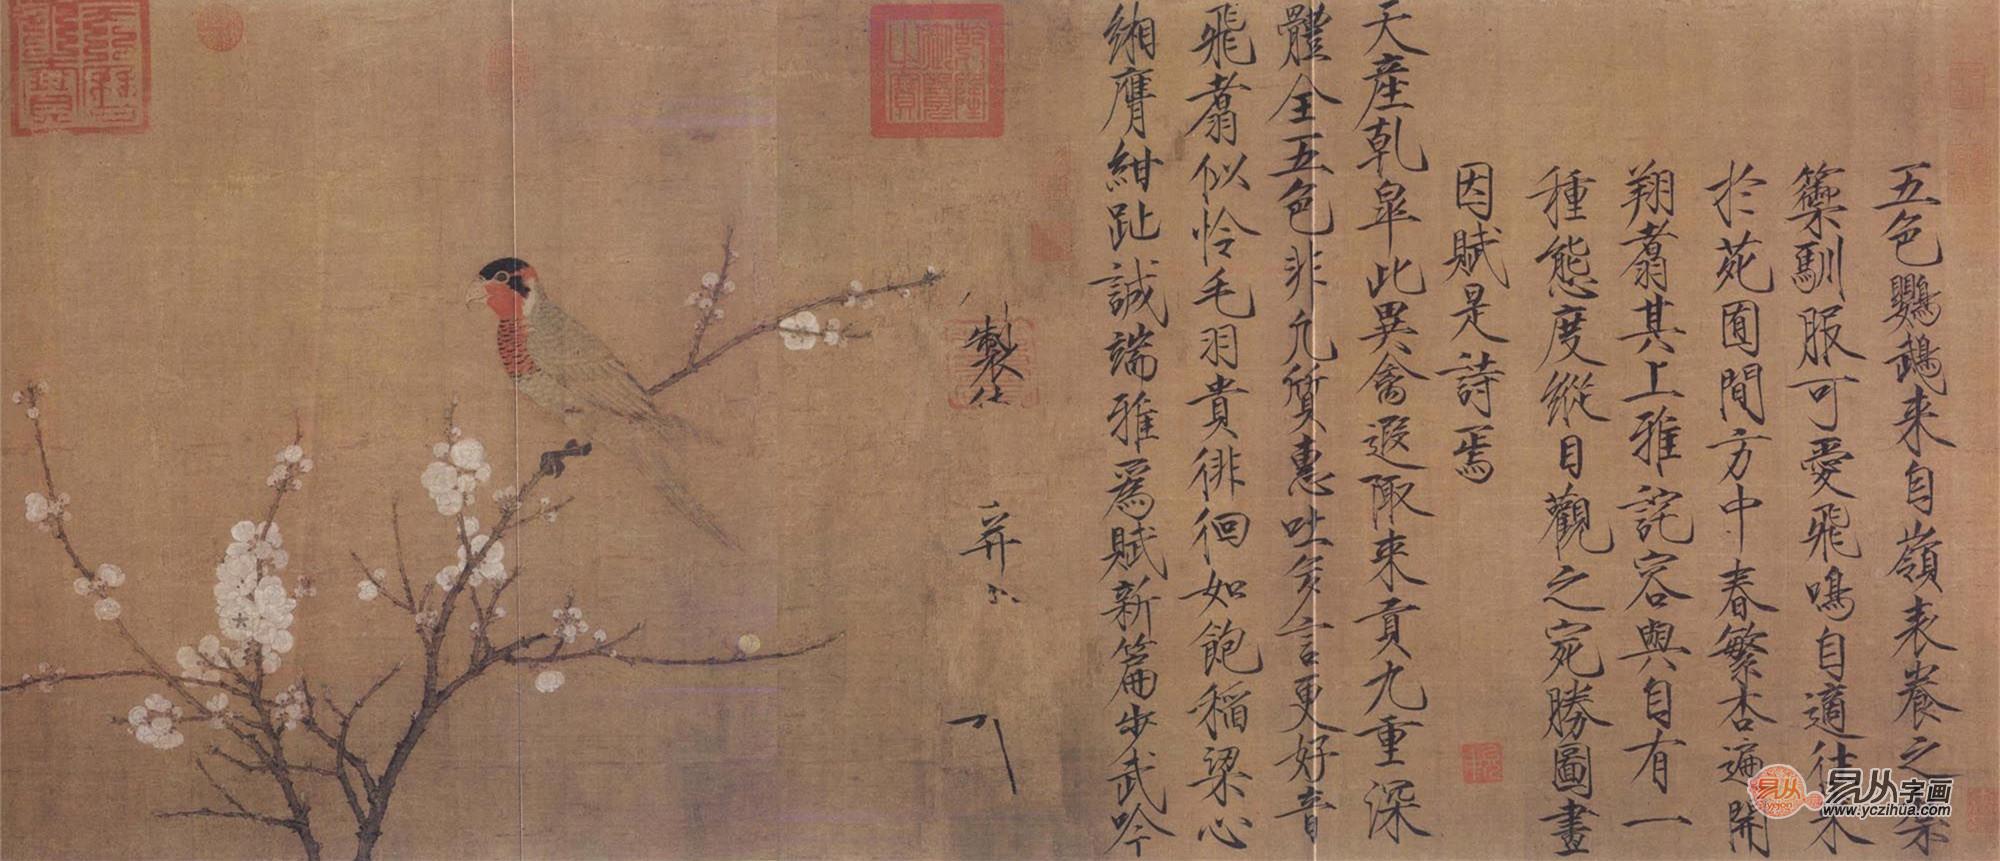 五色鸚鵡来自嶺表養之禁
籞馴服可愛飛鳴自適往来
於苑囿間方中春繁杏遍開
翔翥其上雅詫容與自有一
種態度縱目觀之宛勝圖畫
因賦是詩焉
天産乾皋此異禽遐陬来貢九重深
體全五色非凡質惠吐多言更好音
飛翥似怜毛羽貴徘徊如飽稲粱心
緗膺紺趾誠端雅爲賦新篇步武吟
製
并
乾隆御覽之寶
易从字画
www.yczihua.com